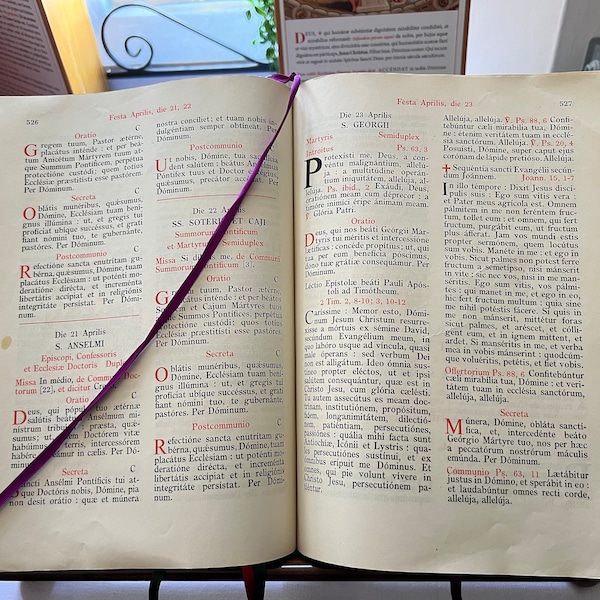 DEUS, ✠ qui humánæ substántiæ dignitátem mirabíliter condidísti, et
526
Festa Aprilis, die 21, 22
Oratio C
Gregem tuum, Pastor ætérne,
placátus inténde : et per beá-
tum Anicétum Mártyrem tuum at-
que Summum Pontíficem, perpétua
protectióne custódi; quem totíus
Ecclésiæ præstitísti esse pastórem.
Per Dóminum.
Secreta C
Oblátis munéribus, quǽsumus,
Dómine, Ecclésiam tuam beníg-
nus illúmina : ut, et gregis tui
profíciat ubíque succéssus, et grati
fiant nómini tuo, te gubernánte,
pastóres. Per Dóminum.
Postcommunio C
Refectióne sancta enutrítam gu-
bérna, quǽsumus, Dómine, tuam
placátus Ecclésiam : ut poténti mo-
deratióne dirécta, et increménta
libertátis accípiat et in religiónis
integritáte persístat. Per Dómi-
num.
Die 21 Aprilis
S. ANSELMI
Episcopi, Confessoris
et Ecclesiæ Doctoris Duplex
Missa In médio, de Communi Doc-
torum [22], et dicitur Credo.
Oratio
Deus, qui pópulo tuo ætérnæ
salútis beátum Ansélmum mi-
nístrum tribuísti : præsta, quǽ-
sumus; ut, quem Doctórem vitæ
habúimus in terris, intercessórem
habére mereámur in cælis. Per Dó-
minum.
Secreta
Sancti Ansélmi Pontíficis tui at-
que Doctóris nobis, Dómine, pia
non desit orátio : quæ et múnera
nostra concíliet; et tuam nobis in-
dulgéntiam semper obtíneat. Per
Dóminum.
Postcommunio
Ut nobis, Dómine, tua sacrifícia
dent salútem : beátus Ansélmus
Póntifex tuus et Doctor egrégius,
quǽsumus, precátor accédat. Per
Dóminum.
Die 22 Aprilis
SS. SOTERIS ET CAII
Summorum Pontificum
et Martyrum Semiduplex
Missa Si díligis me, de Communi
Summorum Pontificum [3].
Oratio
Gregem tuum, Pastor ætérne,
placátus inténde : et per beátos
Sotérem et Cajum Mártyres tuos
atque Summos Pontífices, perpétua
protectióne custódi; quos totíus
Ecclésiæ præstitísti esse pastóres.
Per Dóminum.
Secreta C
Oblátis munéribus, quǽsumus,
Dómine, Ecclésiam tuam beníg-
nus illúmina : ut, et gregis tui
profíciat ubíque succéssus, et grati
fiant nómini tuo, te gubernánte,
pastóres. Per Dóminum.
Postcommunio C
Refectióne sancta enutrítam gu-
bérna, quǽsumus, Dómine, tuam
placátus Ecclésiam : ut poténti mo-
deratióne dirécta, et increménta
libertátis accípiat et in religiónis
integritáte persístat. Per Dómi-
num.
Festa Aprilis, die 23
527
Die 23 Aprilis
S. GEORGII
Martyris Semiduplex
Introitus Ps. 63, 3
Protexísti me, Deus, a con-
véntu malignántium, allelú-
ja : a multitúdine operán-
tium iniquitátem, allelúja, alle-
lúja. Ps. ibid., 2 Exáudi, Deus,
oratiónem meam cum déprecor : a
timóre inimíci éripe ánimam meam.
℣. Glória Patri.
Oratio
Deus, qui nos beáti Geórgii Már-
tyris tui méritis et intercessióne
lætíficas : concéde propítius; ut, qui
tua per eum benefícia póscimus,
dono tuæ grátiæ consequámur. Per
Dóminum.
Léctio Epístolæ beáti Pauli Após-
toli ad Timótheum.
2 Tim. 2, 8-10; 3, 10-12
Caríssime : Memor esto, Dómi-
num Jesum Christum resurre-
xísse a mórtuis ex sémine David,
secúndum Evangélium meum, in
quo labóro usque ad víncula, quasi
male óperans : sed verbum Dei
non est alligátum. Ideo ómnia sustí-
neo propter eléctos, ut et ipsi
salútem consequántur, quæ est in
Christo Jesu, cum glória cælésti.
Tu autem assecútus es meam doc-
trínam, institutiónem, propósitum,
fidem, longanimitátem, dilectió-
nem, patiéntiam, persecutiónes,
passiónes : quália mihi facta sunt
Antiochíæ, Icónii et Lystris : qua-
les persecutiónes sustínui, et ex
ómnibus erípuit me Dóminus. Et
omnes, qui pie volunt vívere in
Christo Jesu, persecutiónem pa-
tiéntur.
Allelúja, allelúja. ℣. Ps. 88, 6 Confi-
tebúntur cæli mirabília tua, Dómi-
ne : étenim veritátem tuam in ecclé-
sia sanctórum. Allelúja. ℣. Ps. 20, 4
Posuísti, Dómine, super caput ejus
corónam de lápide pretióso. Allelúja.
✠ Sequéntia sancti Evangélii secún-
dum Joánnem. Joann. 15, 1-7
In illo témpore : Dixit Jesus discí-
pulis suis : Ego sum vitis vera :
et Pater meus agrícola est. Omnem
pálmitem in me non feréntem fruc-
tum, tollet eum : et omnem, qui fert
fructum, purgábit eum, ut fructum
plus áfferat. Jam vos mundi estis
propter sermónem, quem locútus
sum vobis. Manéte in me : et ego in
vobis. Sicut palmes non potest ferre
fructum a semetípso, nisi mánserit
in vite : sic nec vos, nisi in me man-
séritis. Ego sum vitis, vos pálmi-
tes : qui manet in me, et ego in eo,
hic fert fructum multum : quia sine
me nihil potéstis fácere. Si quis in
me non mánserit, mittétur foras
sicut palmes, et aréscet, et cólli-
gent eum, et in ignem mittent, et
ardet. Si manséritis in me, et verba
mea in vobis mánserint : quodcúm-
que voluéritis, petétis, et fiet vobis.
Offertorium Ps. 88, 6 Confitebúntur
cæli mirabília tua, Dómine : et veri-
tátem tuam in ecclésia sanctórum,
allelúja, allelúja.
Secreta
Múnera, Dómine, obláta sanctí-
fica, et, intercedénte beáto
Geórgio Mártyre tuo, nos per hæc
a peccatórum nostrórum máculis
emúnda. Per Dóminum.
Communio Ps. 63, 11 Lætábitur
justus in Dómino, et sperábit in eo :
et laudabúntur omnes recti corde,
allelúja, allelúja.